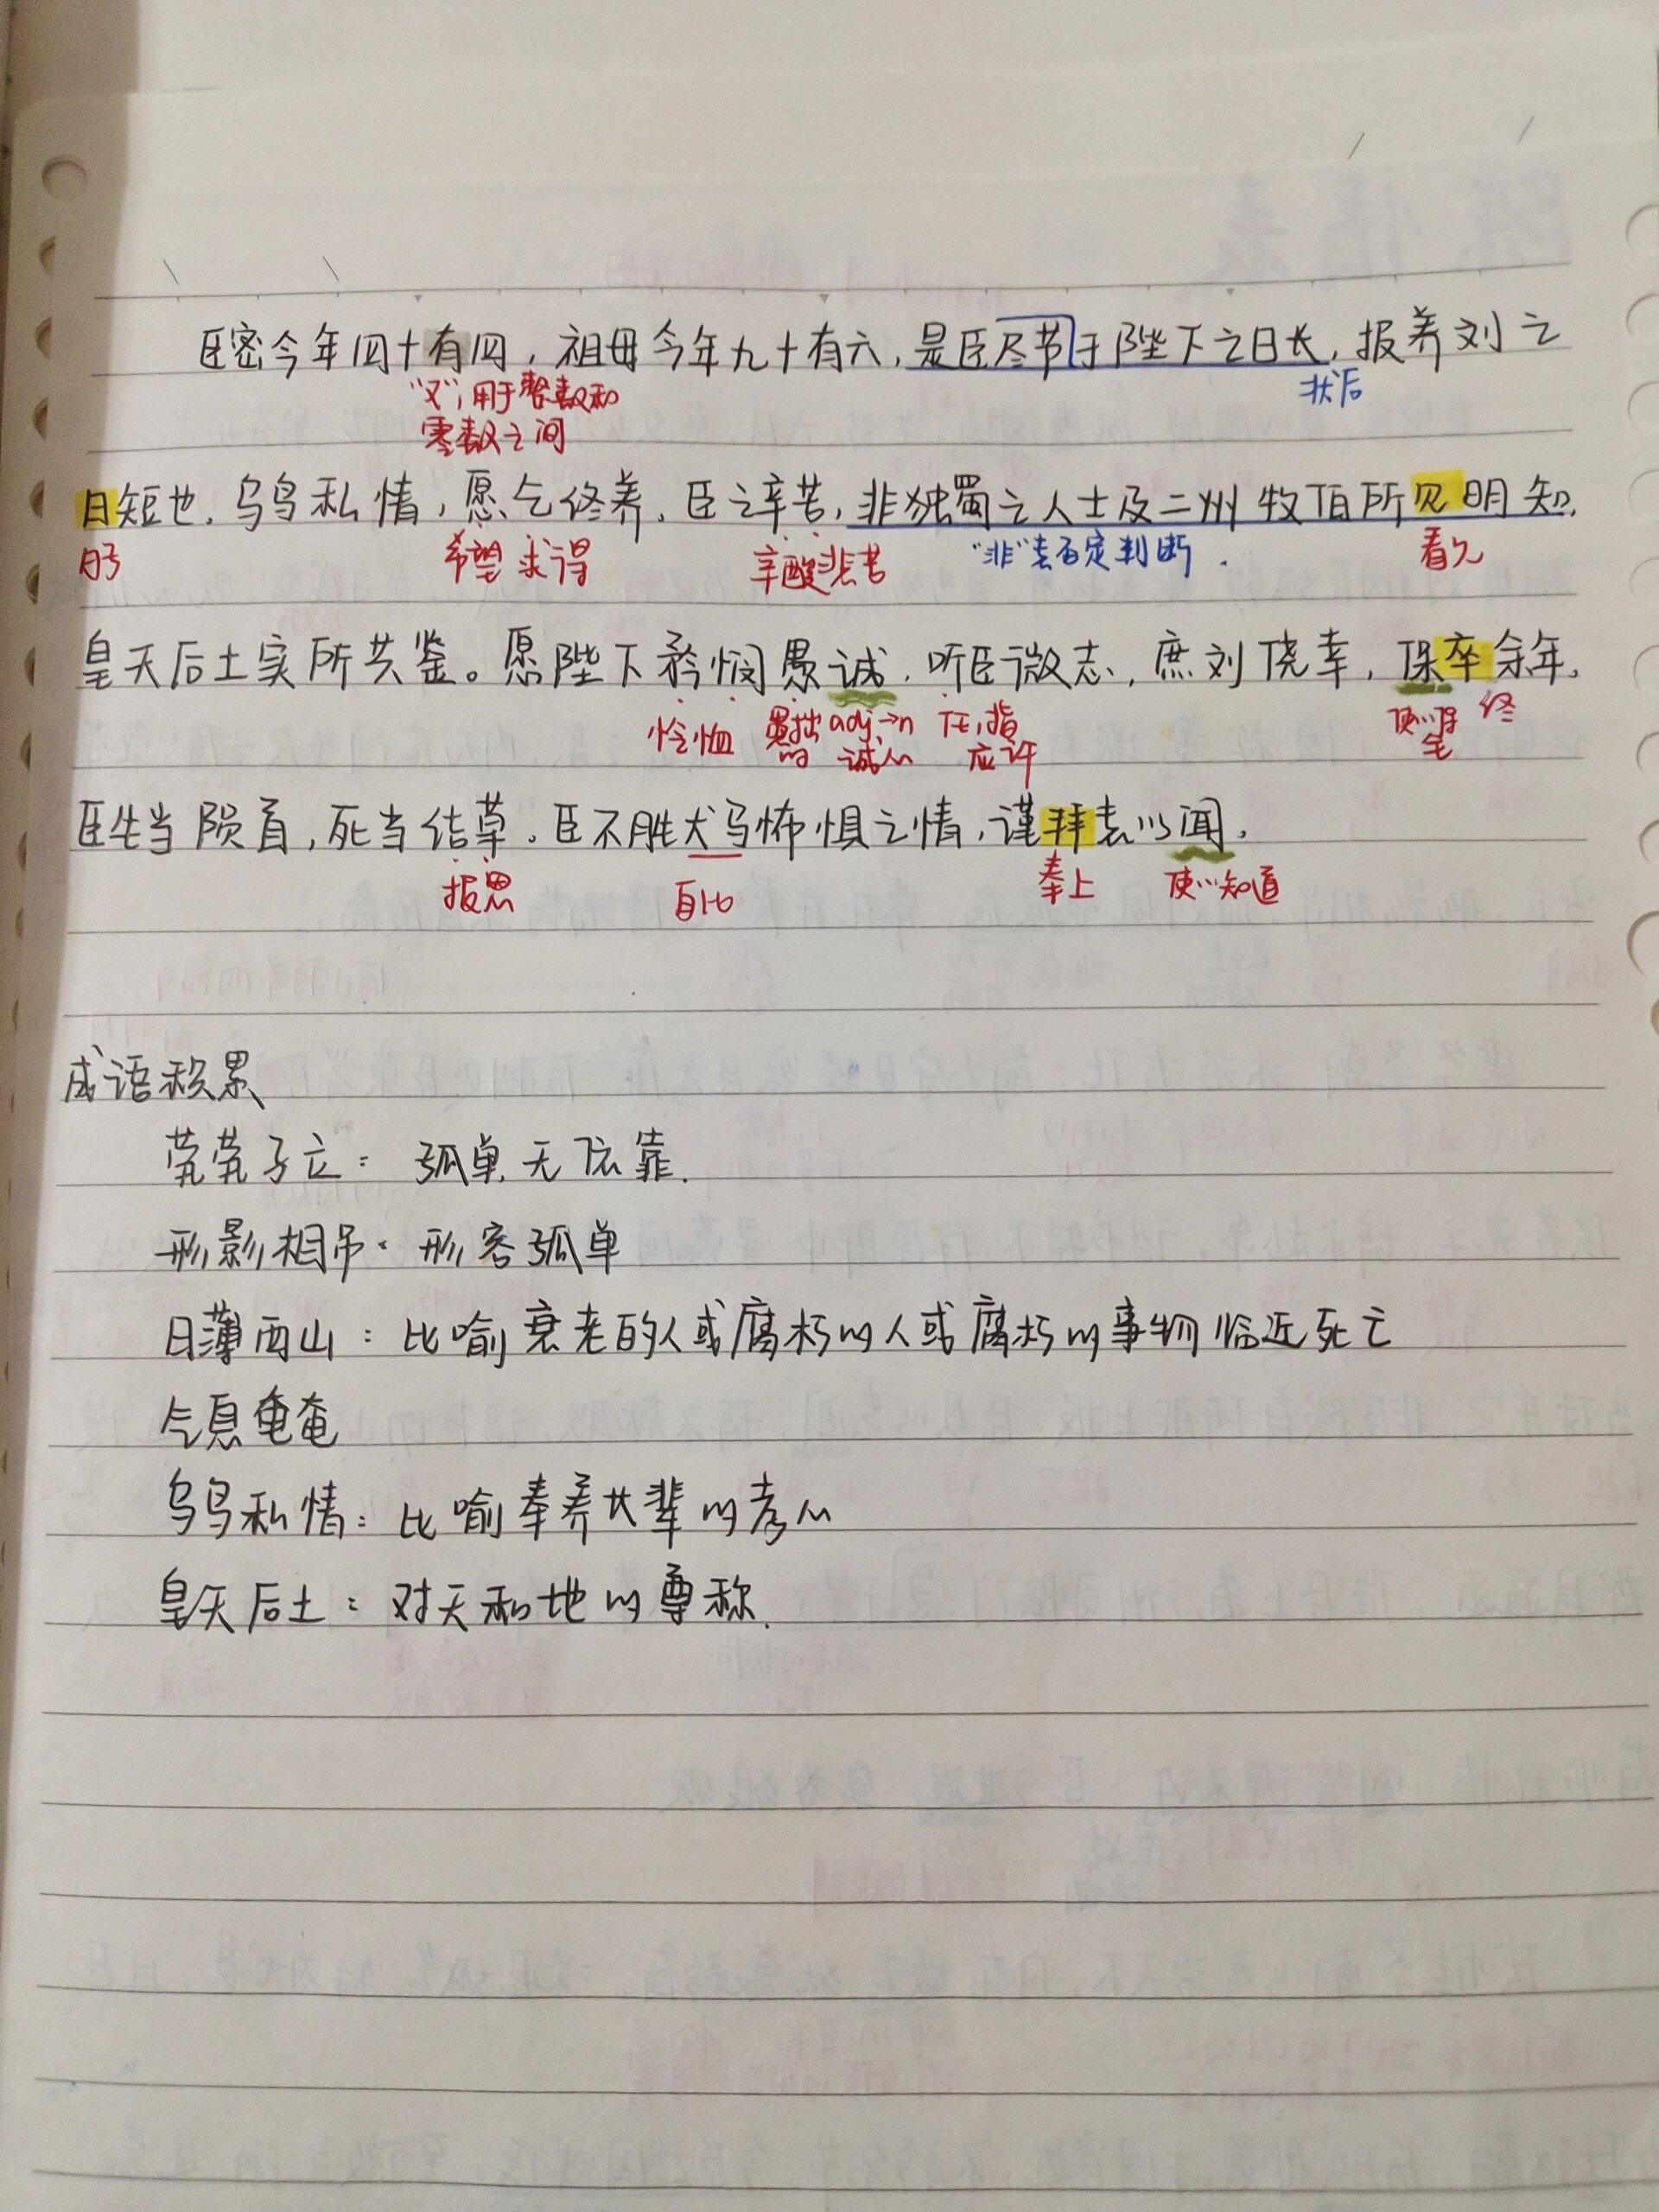 臣密今年四十有四，祖母今年九十有六，是臣尽节于陛下之日长，报养刘之
"又"，用于整数和
零数之间
状后
日短也。乌鸟私情，愿乞终养。臣之辛苦，非独蜀之人士及二州牧伯所见明知，
时
希望 求得
辛酸悲苦
"非"表否定判断．
看见
皇天后土实所共鉴。愿陛下矜悯愚诚，听臣微志，庶刘侥幸，保卒余年。
怜恤
愚拙的
adj→n
诚心
任，指
应许
终
臣生当陨首，死当结草。臣不胜犬马怖惧之情，谨拜表以闻。
报恩
自比
奉上
使…知道
成语积累
茕茕孑立：孤单无依靠．
形影相吊．形容孤单
日薄西山：比喻衰老的人或腐朽的人或腐朽的事物临近死亡
气息奄奄
乌鸟私情：比喻奉养长辈的孝心
皇天后土：对天和地的尊称．